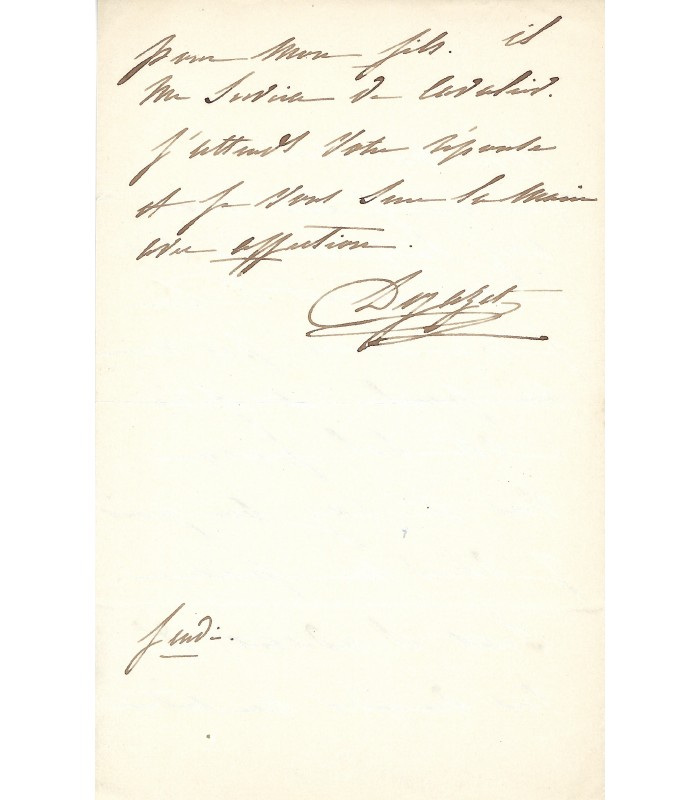 pour mon fils. il
me servira de cavalier.
j'attends votre réponse
et je vous serre la main
avec affection.
Dejazet
jeudi.